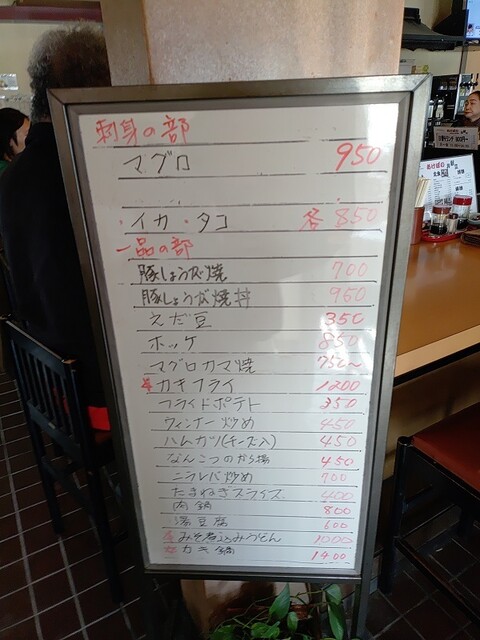 刺身の部
マグロ 950
・イカ・タコ 各850
一品の部
豚しょうが焼 700
豚しょうが焼丼 950
えだ豆 350
ホッケ 850
マグロカマ焼 750〜
カキフライ 1200
フライドポテト 350
ウィンナー炒め 450
ハムカツ(チーズ入) 450
なんこつのから揚 450
ニラレバ炒め 700
たまねぎスライス 400
肉鍋 800
湯豆腐 600
みそ煮込みうどん 1000
カキ鍋 1400